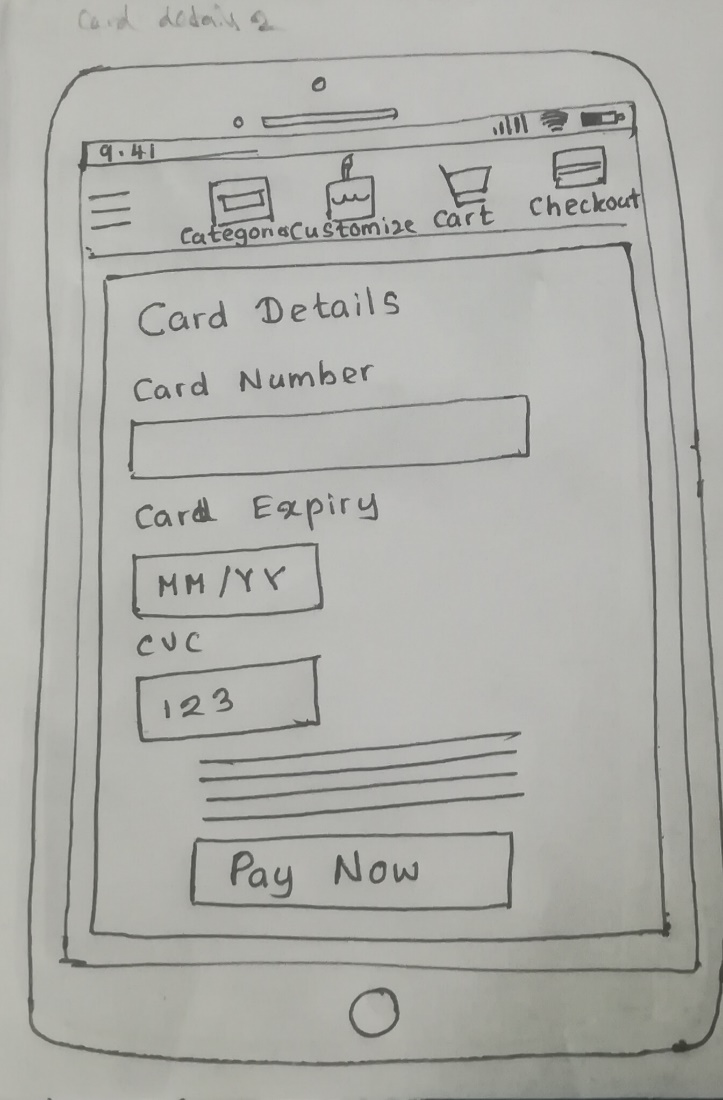 Card details 2
9.41
Categories Customize Cart Checkout
Card Details
Card Number
Card Expiry
MM/YY
CVC
123
Pay Now